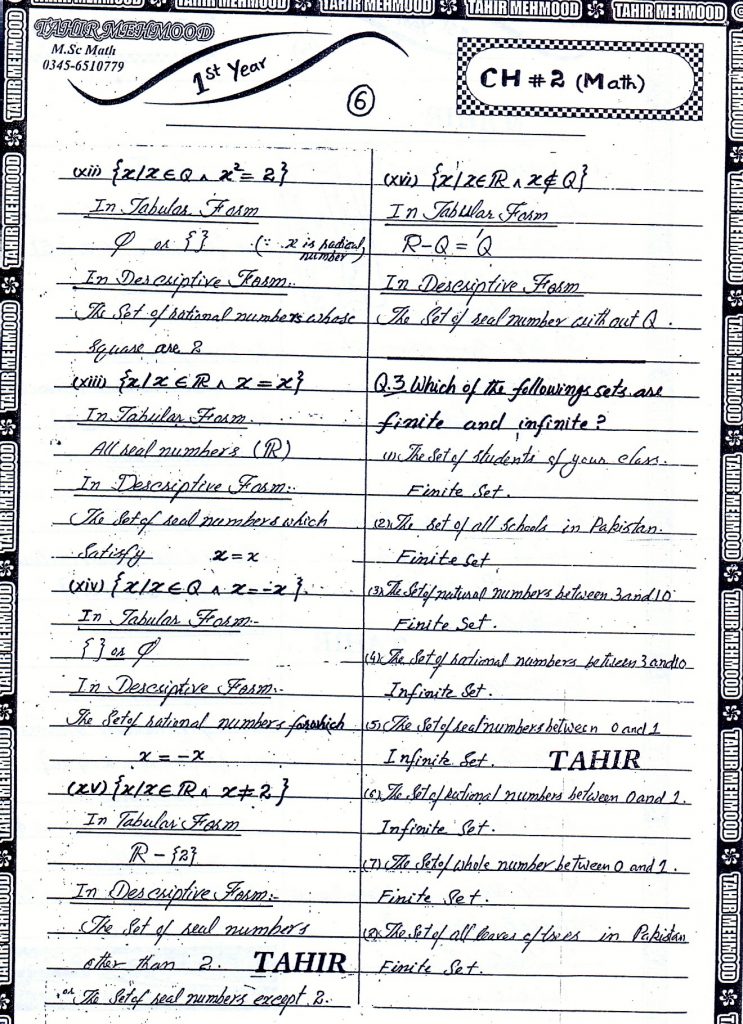 TAHIR MEHMOOD
M.Sc Math
0345-6510779
1st Year
6
CH # 2 (Math)
(xii) {x/x∈Q ∧ x²= 2}
In Tabular Form
φ or { } (∵ x is radical number)
In Descriptive Form:-
The Set of rational numbers whose
square are 2
(xiii) {x/x ∈ ℝ ∧ x = x}
In Tabular Form
All real numbers (ℝ)
In Descriptive Form:-
The Set of real numbers which
Satisfy x = x
(xiv) {x/x∈Q ∧ x=-x}.
In Tabular Form-
{ } or φ
In Descriptive Form:-
The Set of rational numbers for which
x = -x
(xv) {x/x∈ℝ ∧ x≠2}
In Tabular Form
ℝ - {2}
In Descriptive Form:-
The Set of real numbers
other than 2. TAHIR
or The Set of real numbers except 2.
(xvi) {x/x∈ℝ ∧ x∉Q}
In Tabular Form
ℝ-Q = Q'
In Descriptive Form
The Set of real number without Q.
Q.3 Which of the followings sets are
finite and infinite?
(1) The Set of students of your class.
Finite Set.
(2) The set of all schools in Pakistan.
Finite Set
(3) The Set of natural numbers between 3 and 10
Finite Set.
(4) The Set of rational numbers between 3 and 10
Infinite Set.
(5) The Set of real numbers between 0 and 1
Infinite Set. TAHIR
(6) The Set of rational numbers between 0 and 1.
Infinite Set.
(7) The Set of whole number between 0 and 1.
Finite Set.
(8) The Set of all leaves of trees in Pakistan
Finite Set.